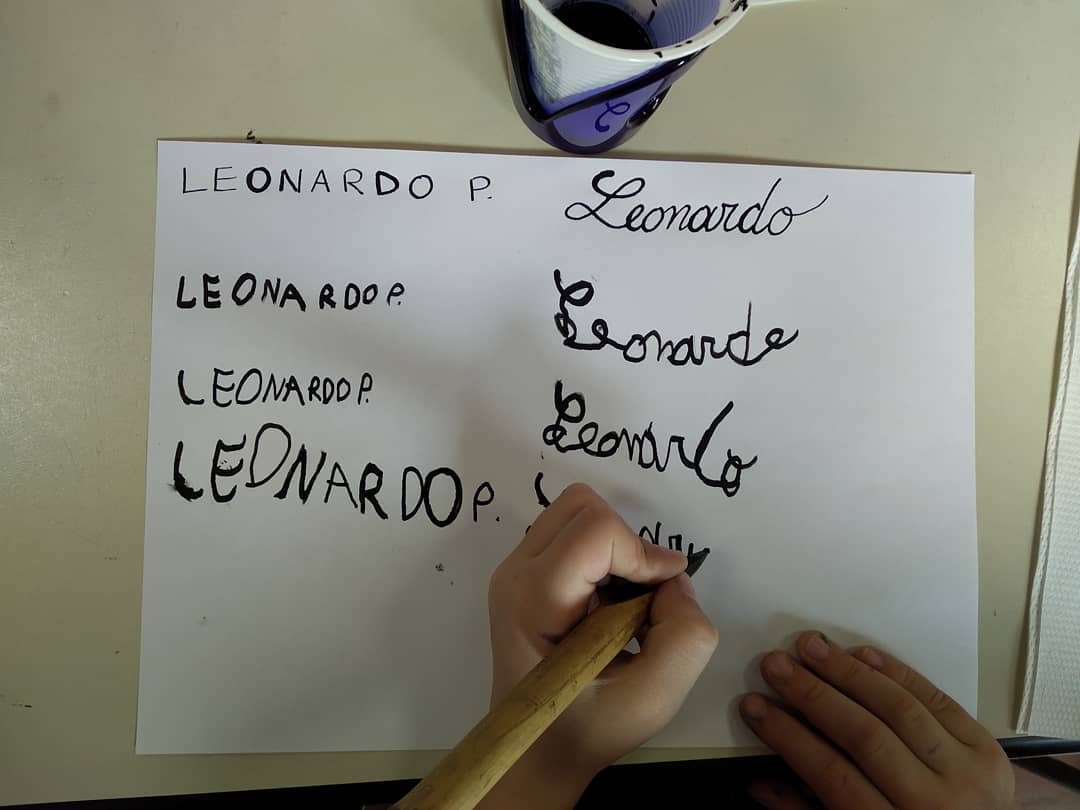 LEONARDO P.
LEONARDO P.
LEONARDO P.
LEONARDO P.
Leonardo
Leonardo
Leonardo
L